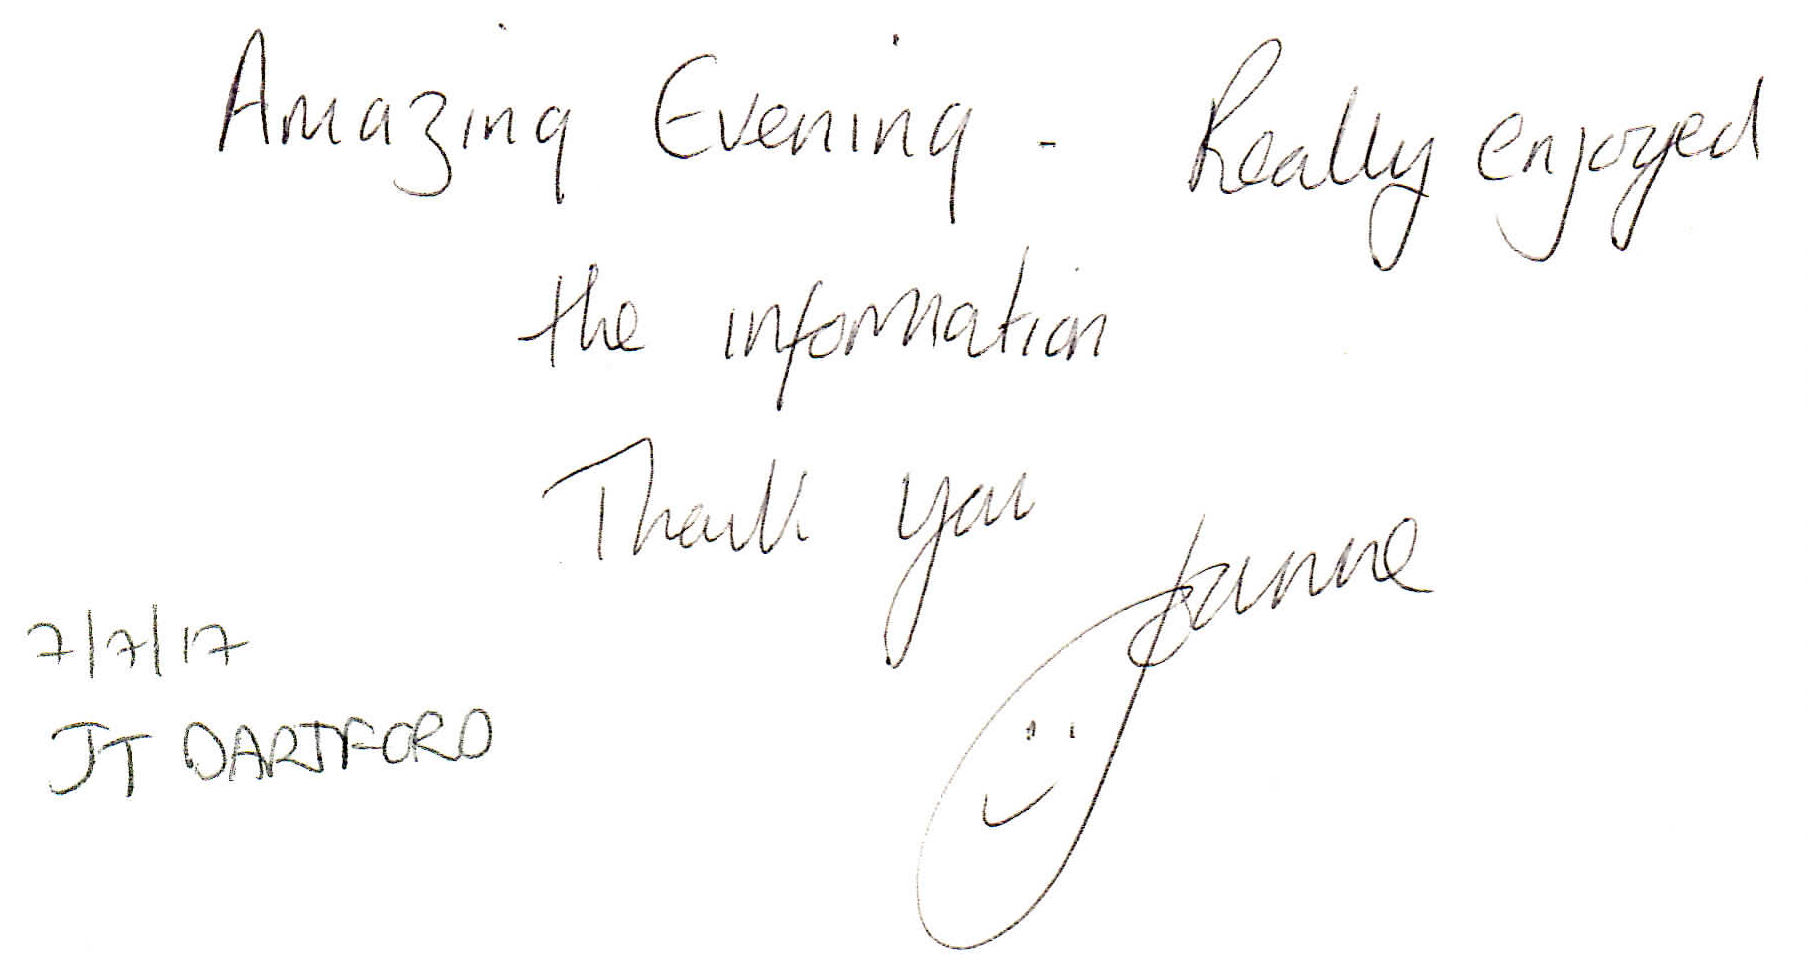 Amazing Evening - Really enjoyed
the information
Thank you
Joanne
7/7/17
JT DARTFORD